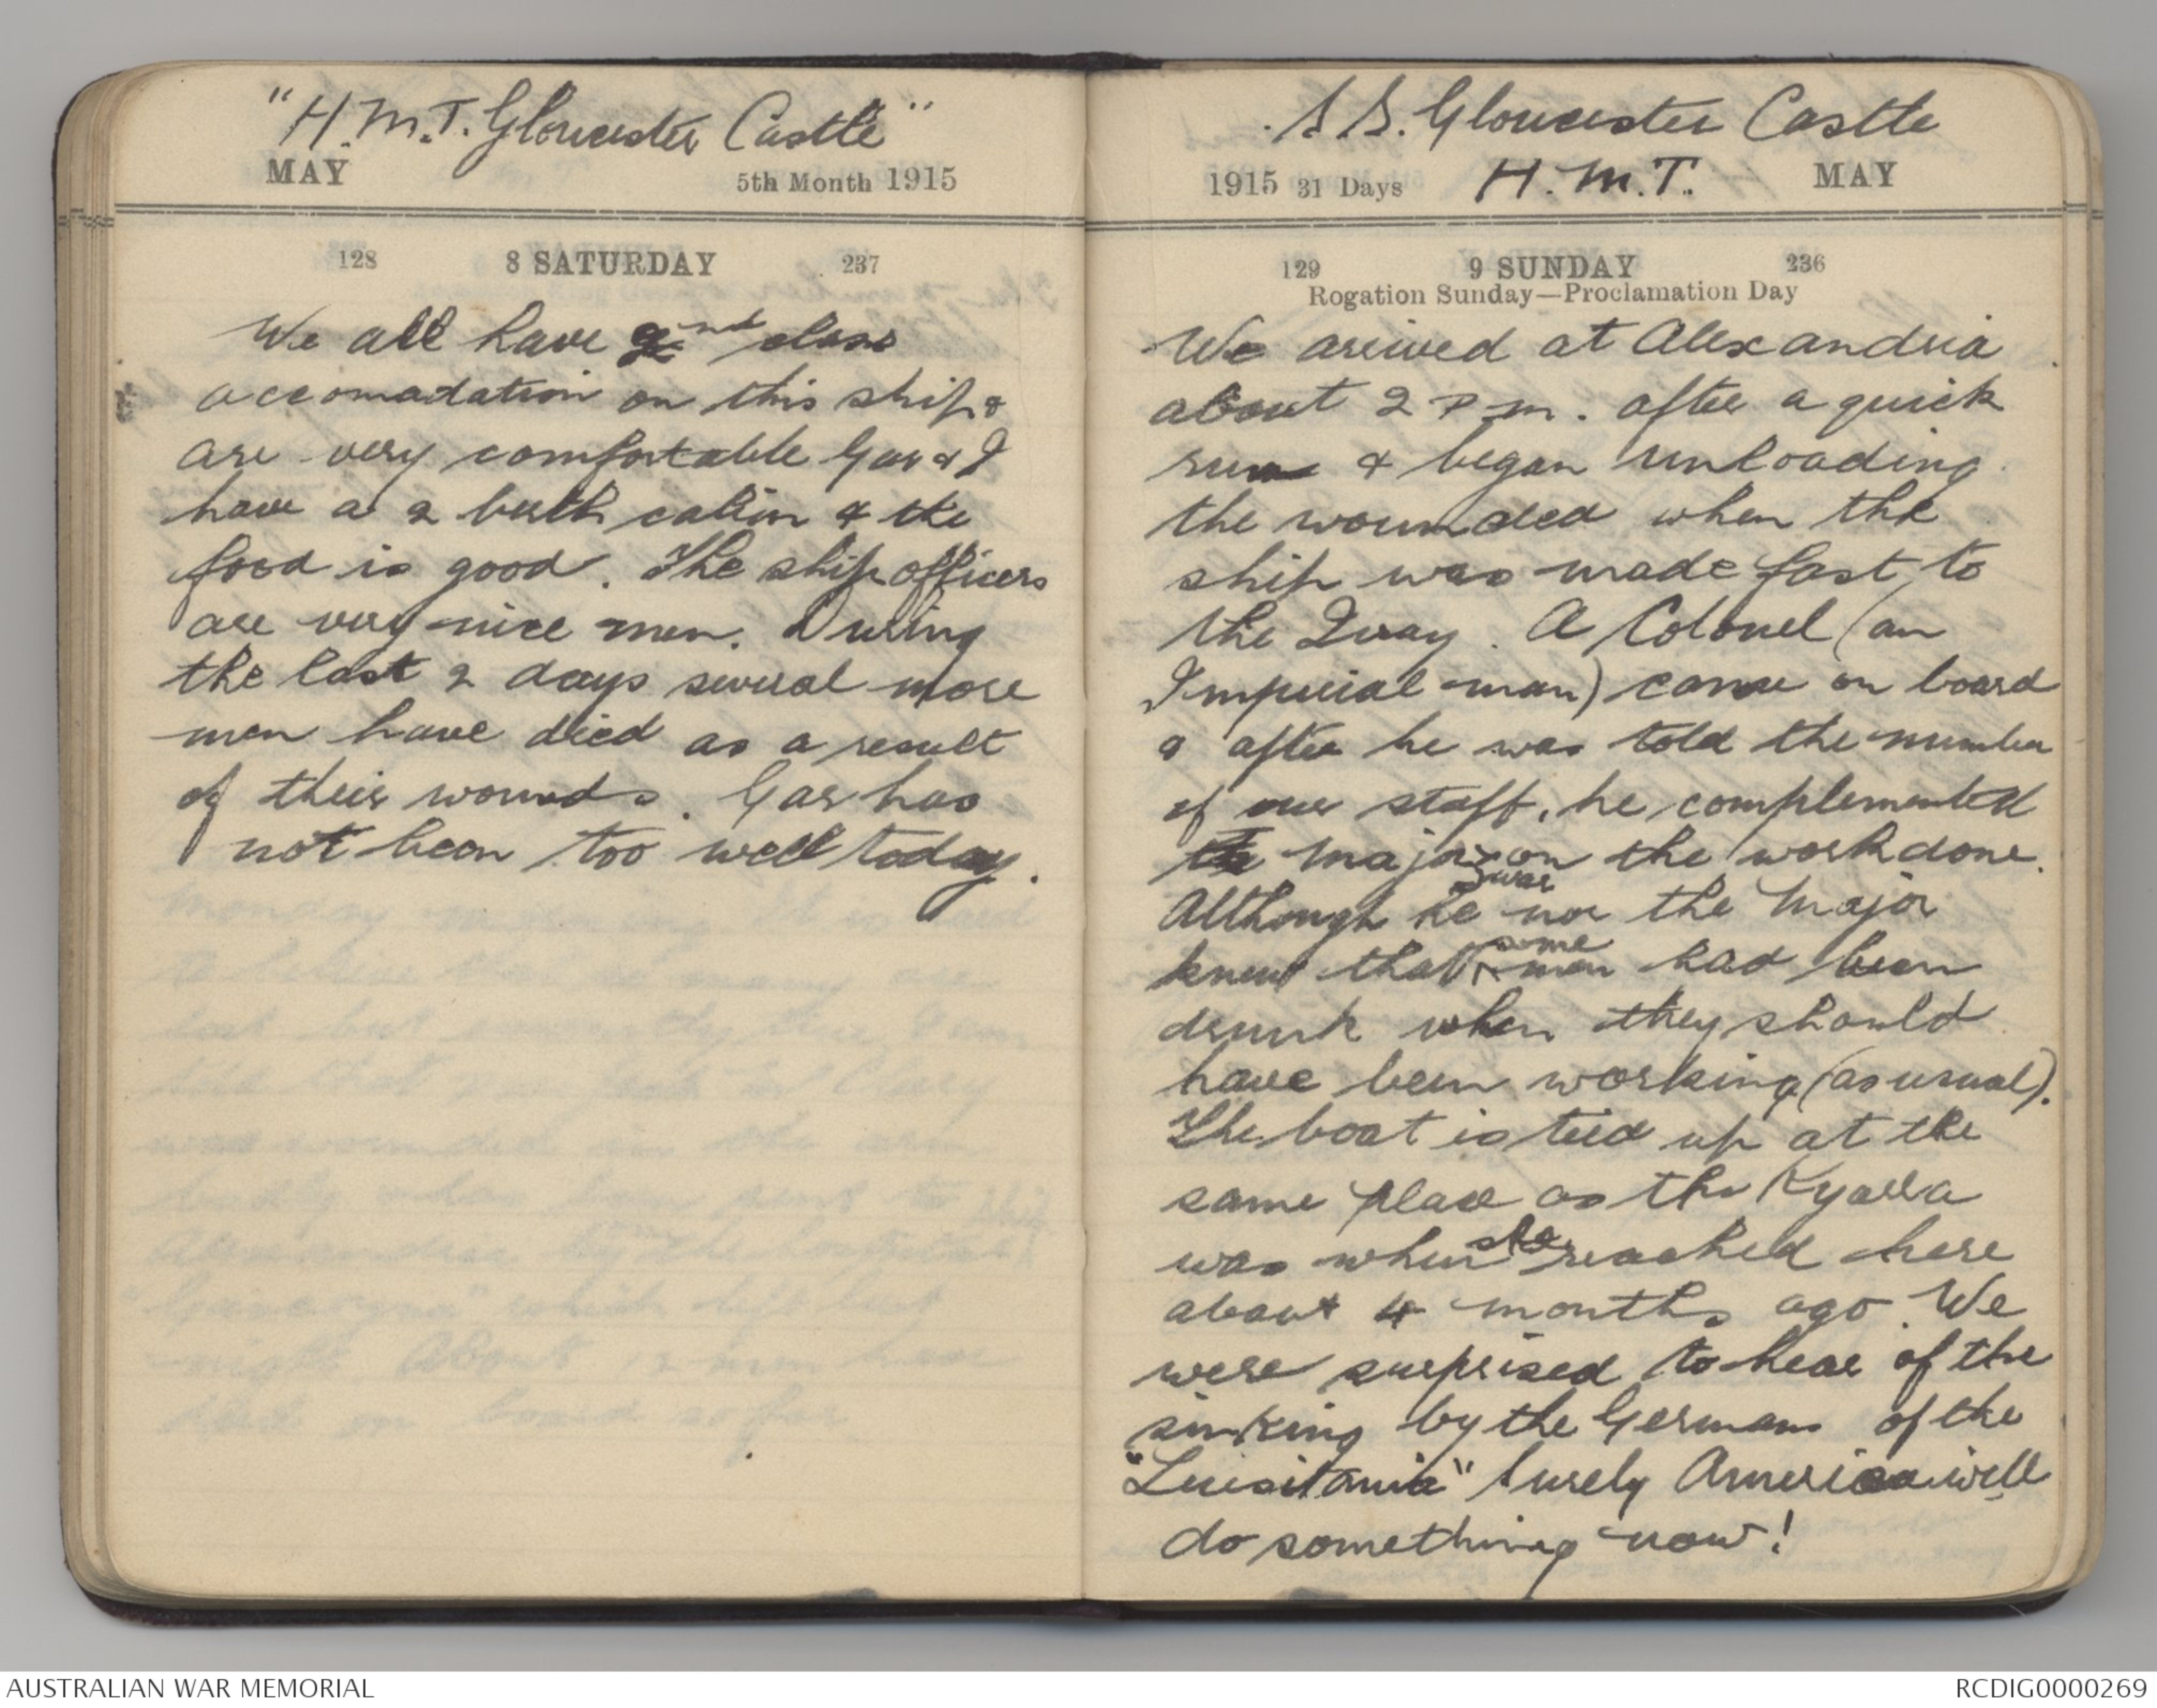 "H.M.T. Gloucester Castle"
MAY 5th Month 1915
128 8 SATURDAY 237
We all have 2nd class
accomadation on this ship &
are very comfortable Gar & I
have a 2 berth cabin & the
food is good. The ship officers
are very nice men. During
the last 2 days several more
men have died as a result
of their wounds. Gar has
not been too well today.
S.S. Gloucester Castle
1915 31 Days H.M.T. MAY
129 9 SUNDAY 236
Rogation Sunday—Proclamation Day
We arrived at Alexandria
about 2 P.m. after a quick
run & began unloading
the wounded when the
ship was made fast to
the Quay. A Colonel (an
Imperial man) came on board
& after he was told the number
of our staff, he complemented
the Major on the work done.
Although he nor the Major
knew that some men had been
drunk when they should
have been working (as usual).
The boat is tied up at the
same place as the Kyarra
was when she reached here
about 4 months ago. We
were surprised to hear of the
sinking by the Germans of the
"Luisitania" Surely America will
do something now!
AUSTRALIAN WAR MEMORIAL RCDIG0000269